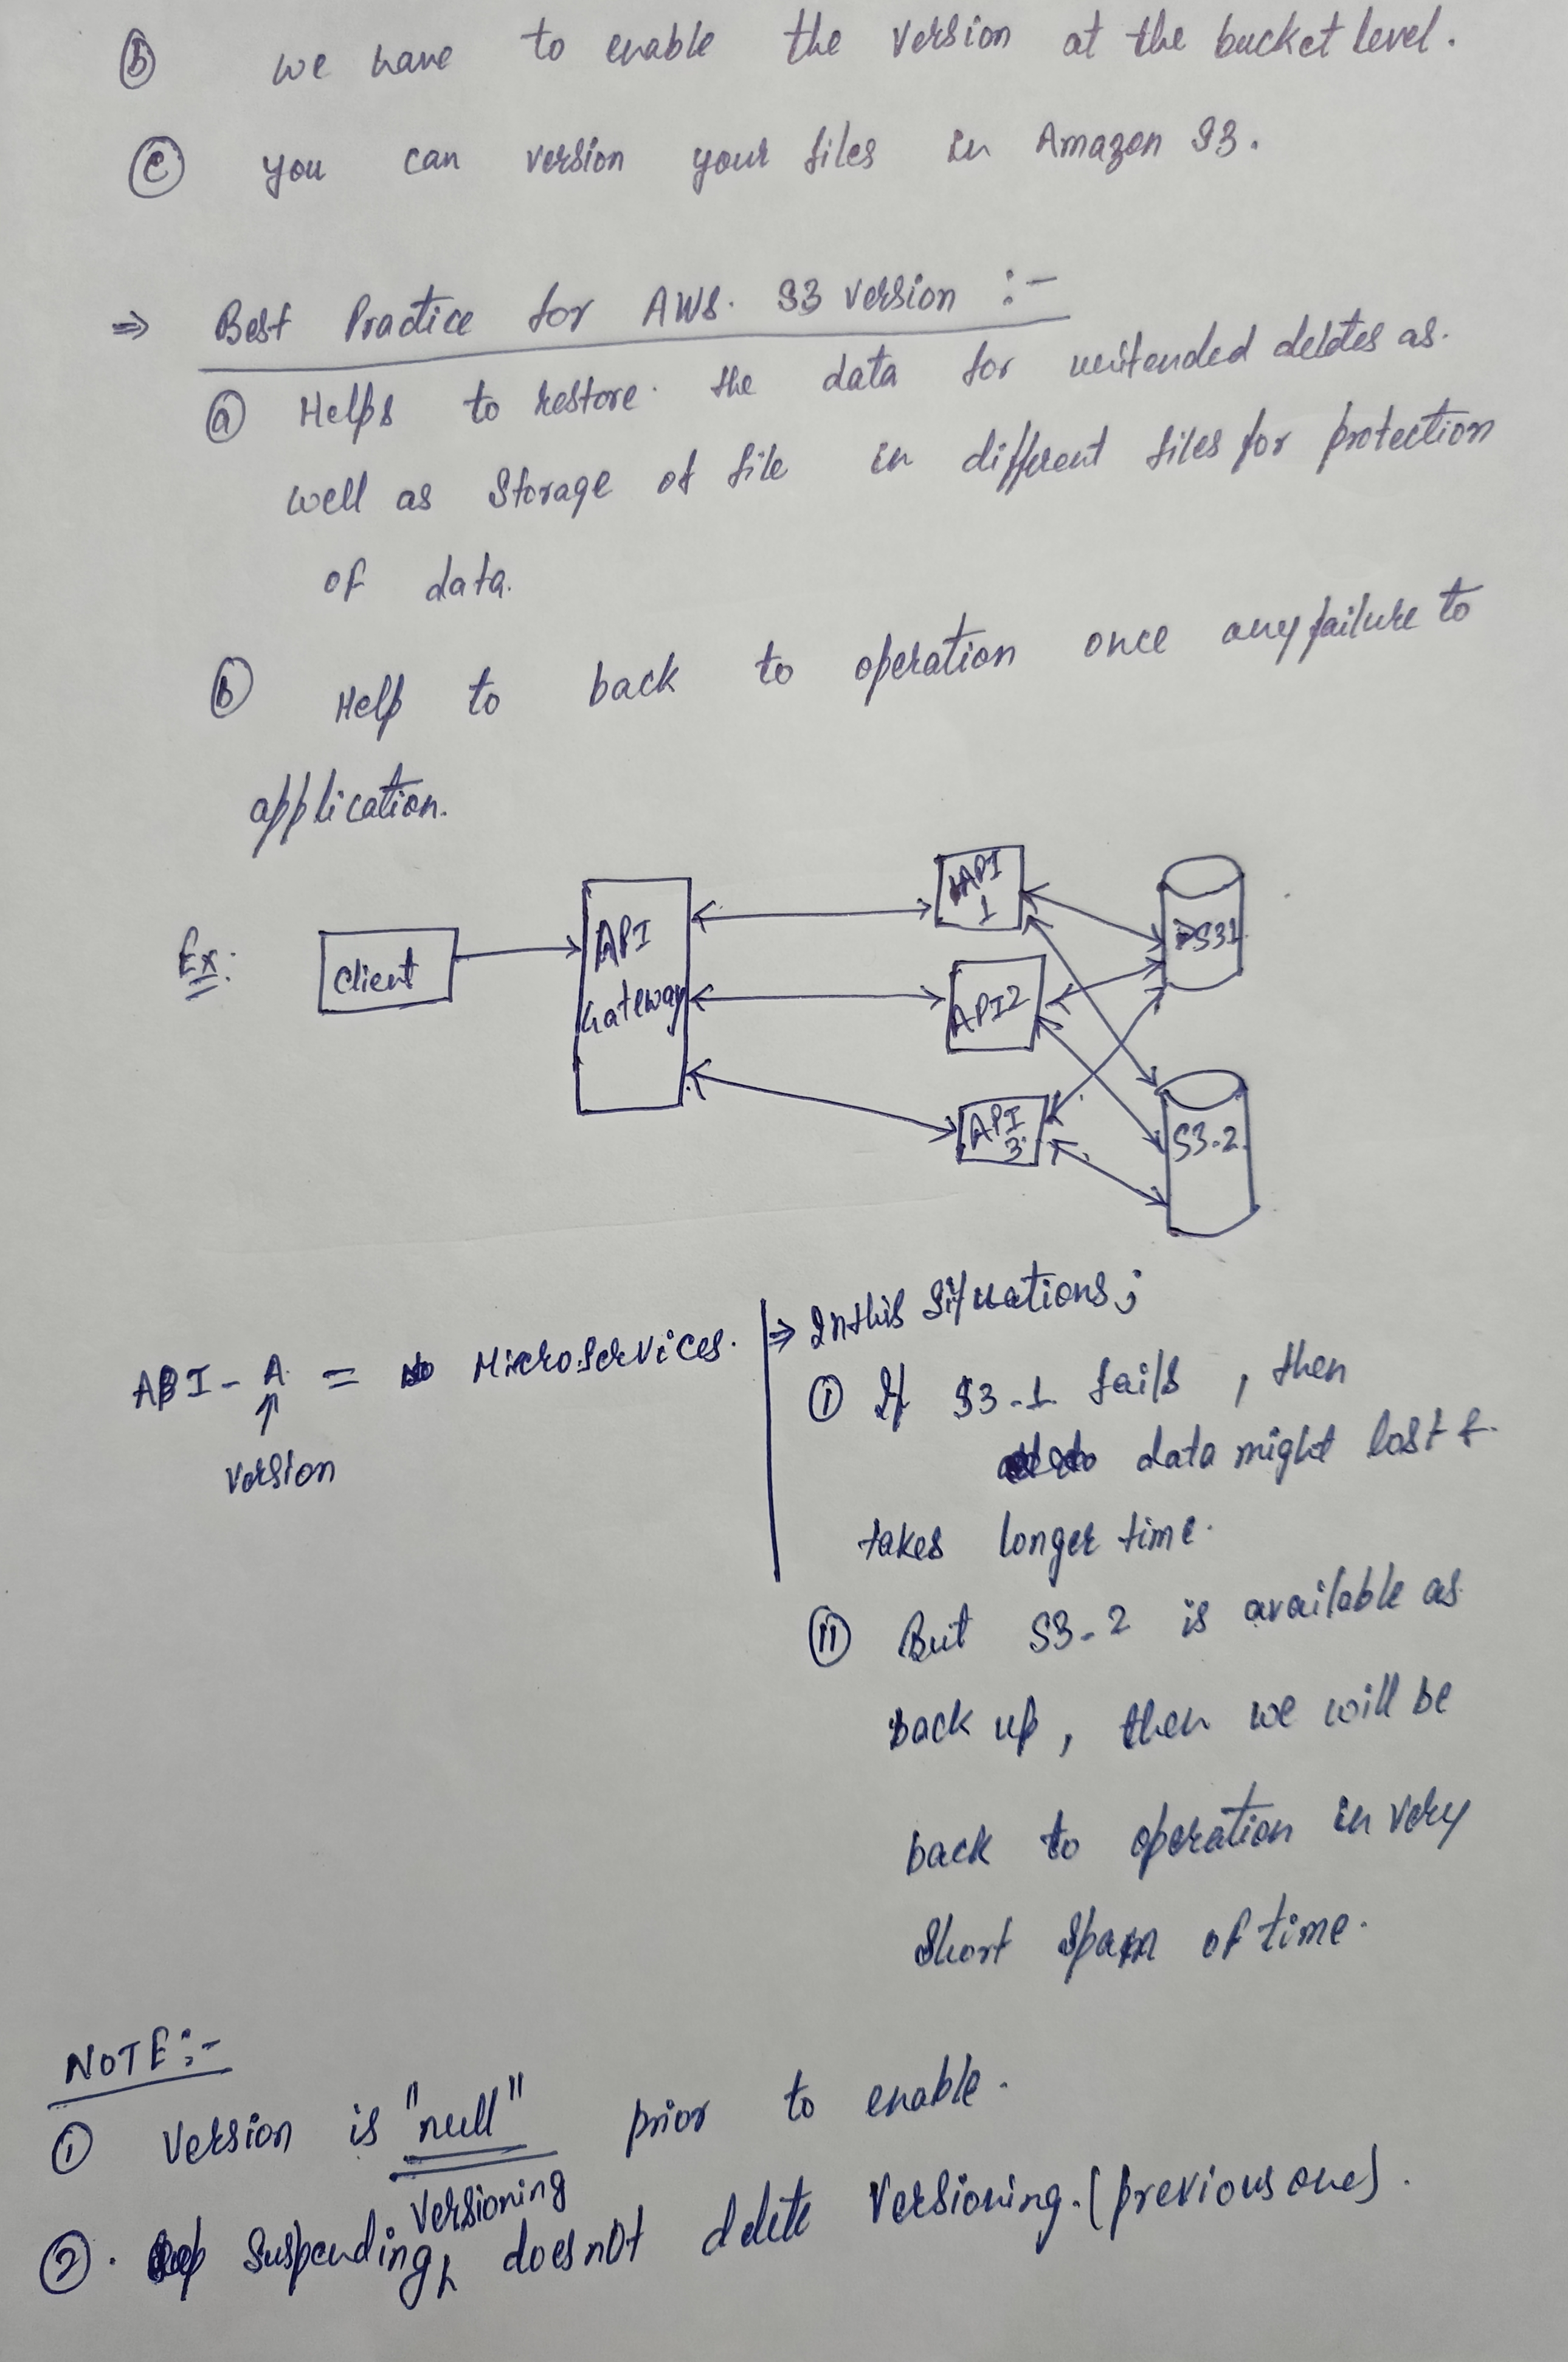 ⓑ we have to enable the version at the bucket level.
ⓒ you can version your files in Amazon S3.
⇒ Best Practice for AWS. S3 version :-
ⓐ Helps to restore. the data for unitended deletes as.
well as storage of file in different files for protection
of data.
ⓑ Help to back to operation once any failure to
application.
Ex:
Client
API
Gateway
API
1
API2
API
3
S31
S3-2
API - A = Microservices.
↑
version
⇒ In this situations;
① If S3-1 fails, then
data might lost &
takes longer time.
⑪ But S3-2 is available as
back up, then we will be
back to operation in very
short span of time.
NOTE:-
① Version is "null" prior to enable.
versioning
②. Suspending, does not delete versioning. (previous one).